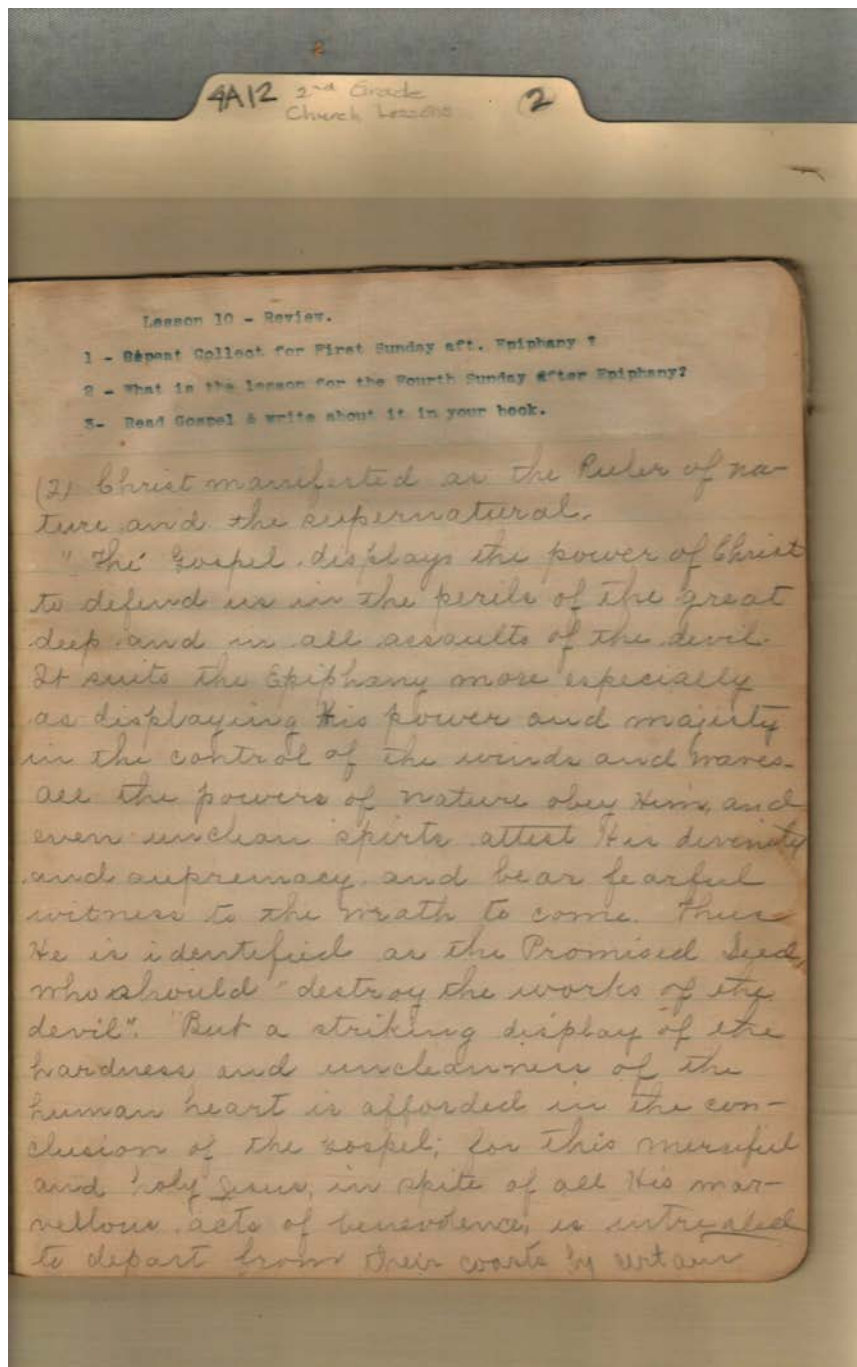 4A12 2nd Grade
Church Lessons
2
Lesson 10 - Review.
1 - Repeat Collect for First Sunday aft. Epiphany ?
2 - What is the lesson for the Fourth Sunday after Epiphany?
3- Read Gospel & write about it in your book.
(2) Christ manifested as the Ruler of na-
ture and the supernatural.
"The Gospel displays the power of Christ
to defend us in the perils of the great
deep and in all assaults of the devil.
It suits the Epiphany more especially
as displaying His power and majesty
in the control of the winds and waves.
all the powers of nature obey Him, and
even unclean spirts attest His divinity
and supremacy and bear fearful
witness to the wrath to come. Thus
He is identified as the Promised Seed,
who should "destroy the works of the
devil". But a striking display of the
hardness and uncleanness of the
human heart is afforded in the con-
clusion of the gospel; for this merciful
and holy Jesus, in spite of all His mar-
vellous acts of benevolence, is intreated
to depart from their coasts by certain